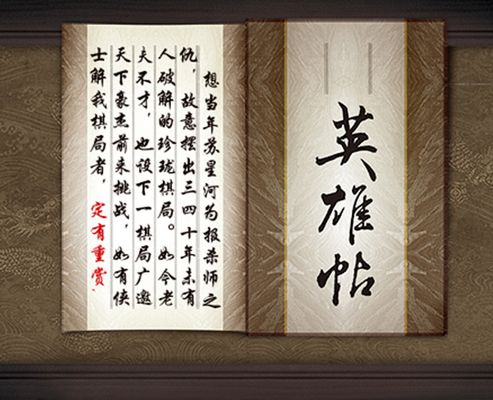 英雄帖
想当年苏星河为报杀师之
仇，故意摆出三四十年未有
人破解的珍珑棋局。如今老
夫不才，也设下一棋局广邀
天下豪杰前来挑战，如有侠
士解我棋局者，定有重赏